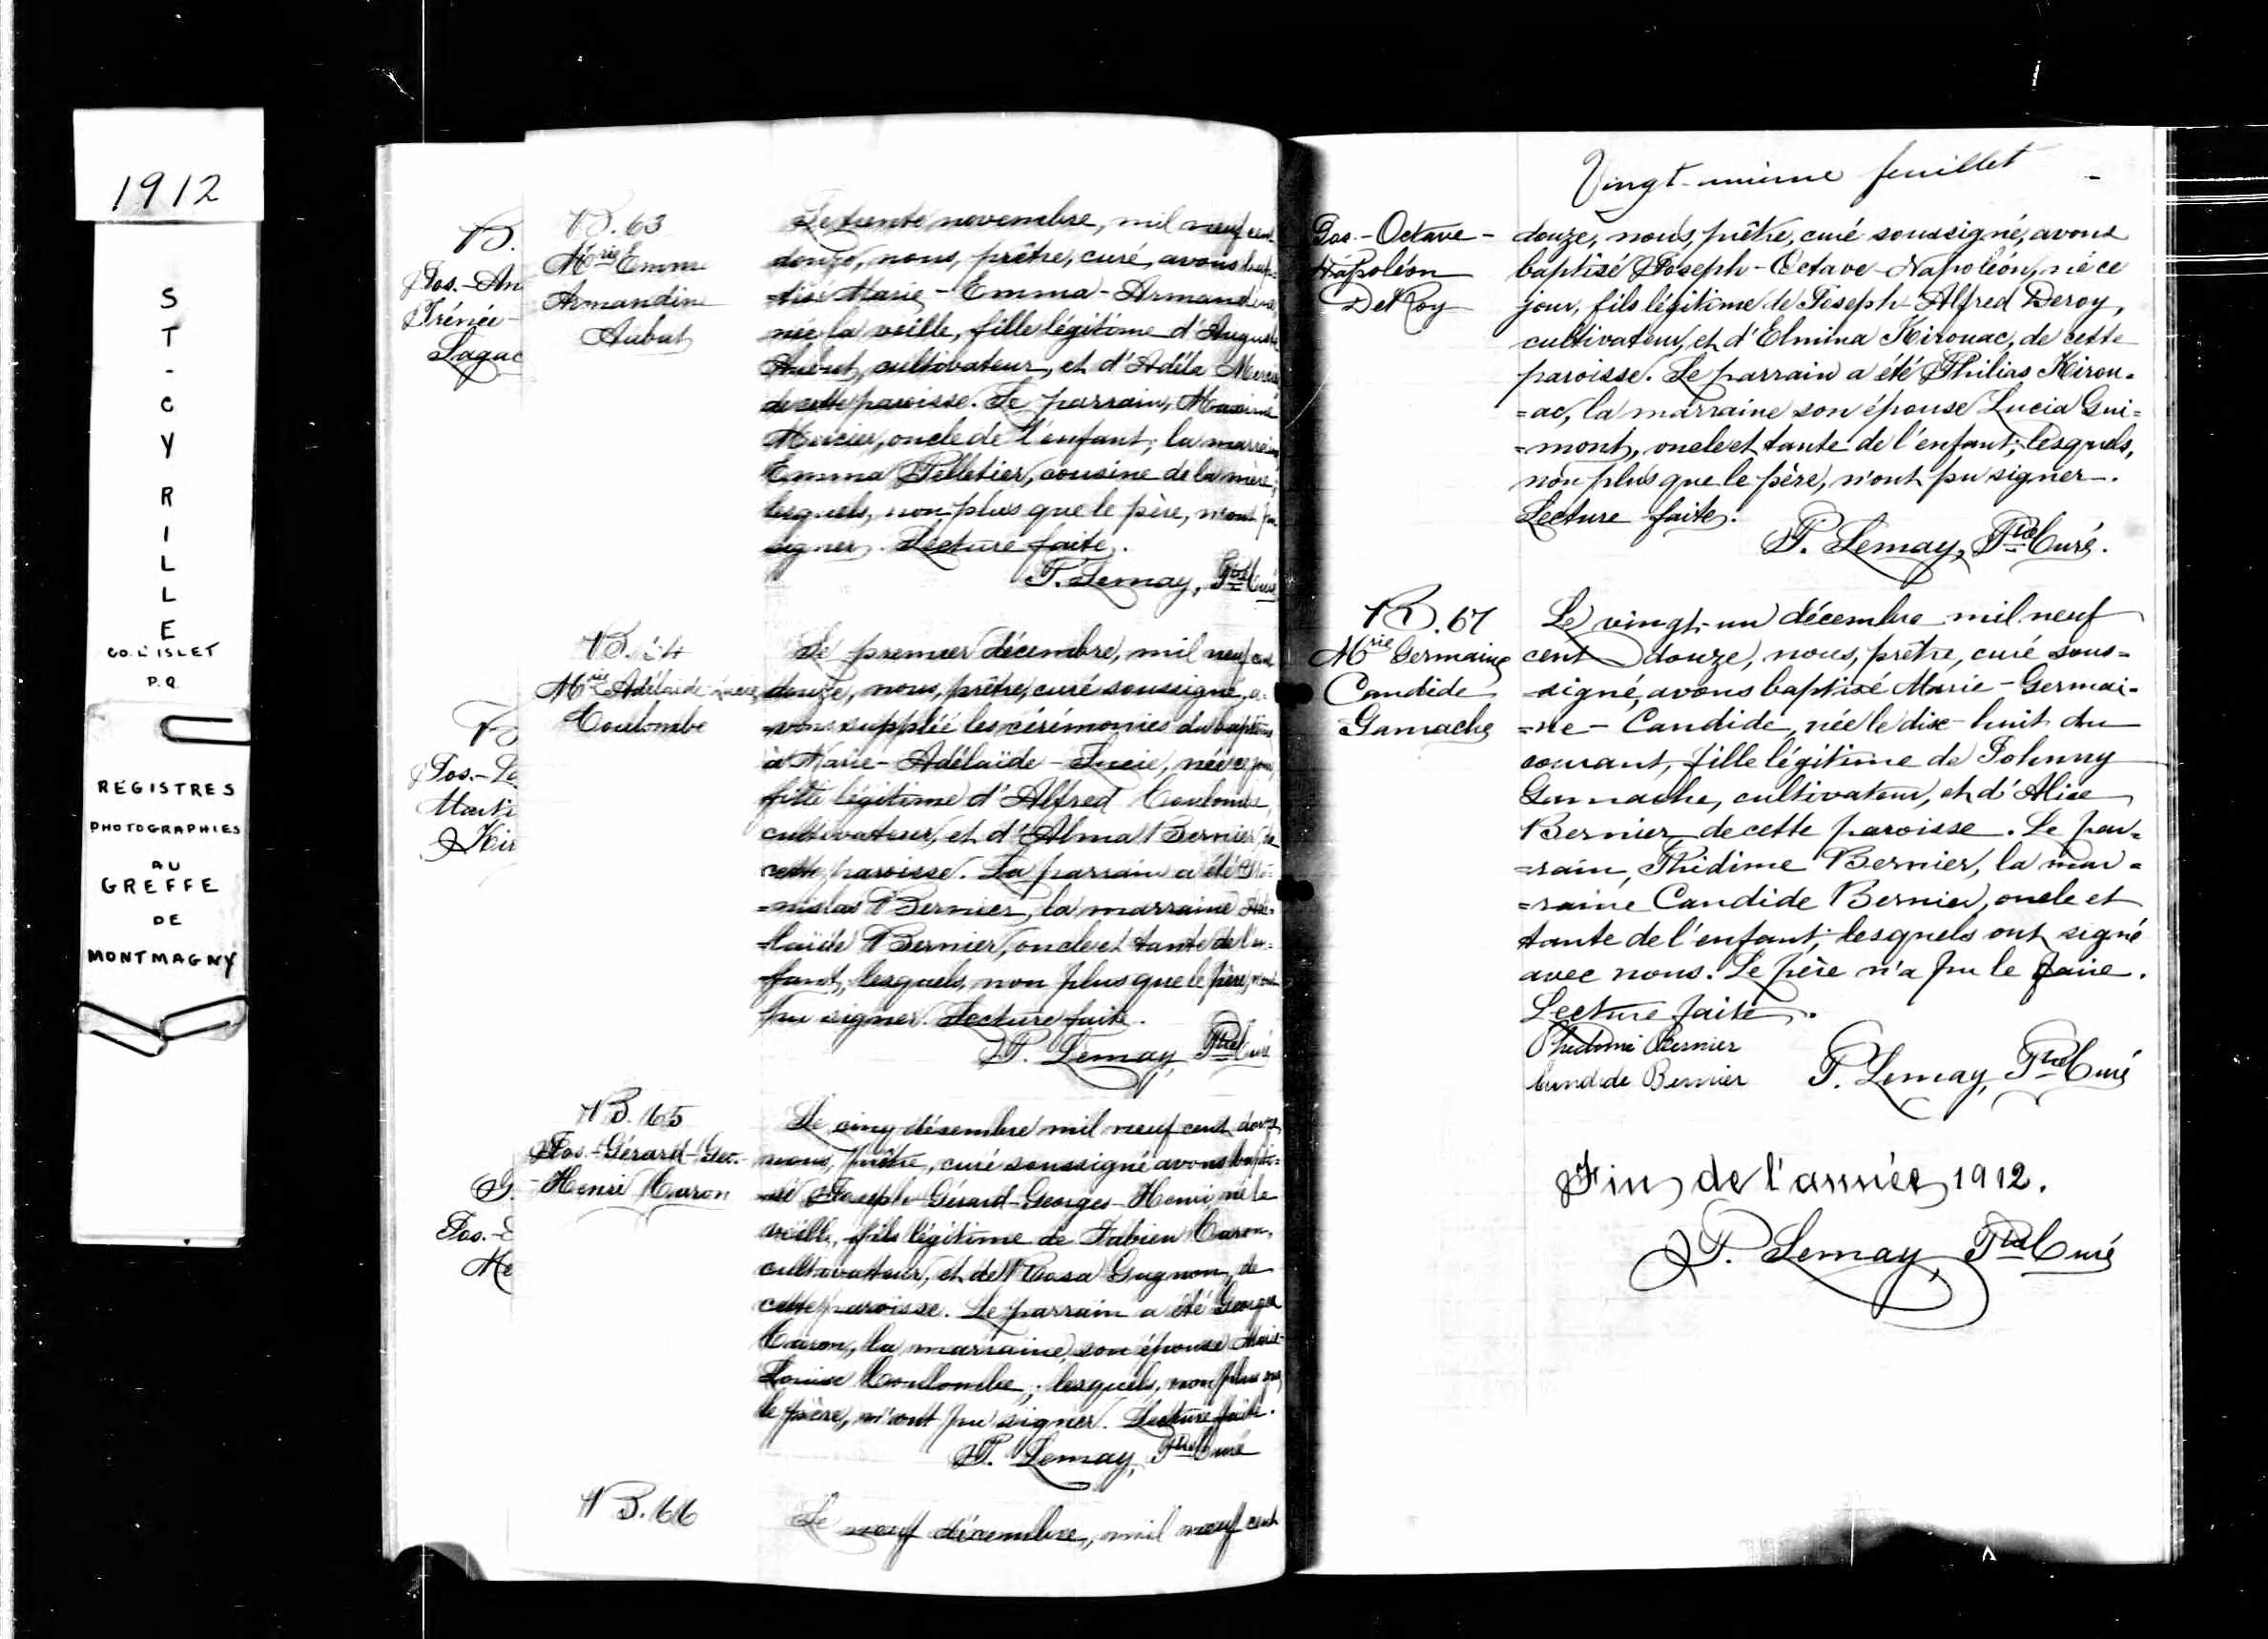 1912
S
T
-
C
Y
R
I
L
L
E
CO. L'ISLET
P.Q.
REGISTRES
PHOTOGRAPHIES
AU
GREFFE
DE
MONTMAGNY
B.
Jos.-An
Irénée-
Lagac
Jos.-Le
Marti
Kir
Jos.-E
Me
B. 63
Mrie Emma
Armandine
Aubut
Le trente novembre, mil neuf cent
douze, nous, prêtre, curé, avons bap=
=tisé Marie-Emma-Armandine,
née la veille, fille légitime d'Auguste
Aubut, cultivateur, et d'Adéla Mercier
de cette paroisse. Le parrain, Maxime
Mercier, oncle de l'enfant; la marraine
Emma Pelletier, cousine de la mère;
lesquels, non plus que le père, n'ont pu
signer. Lecture faite.
P. Lemay, Ptre Curé
B. 64
Mrie Adélaïde Lucie
Coulombe
Le premier décembre, mil neuf cent
douze, nous, prêtre, curé soussigné, a=
=vons suppléé les cérémonies du baptême
à Marie-Adélaïde-Lucie, née ce jour,
fille légitime d'Alfred Coulombe,
cultivateur, et d'Alma Bernier, de
cette paroisse. La parrain a été
=nislas Bernier, la marraine Adé=
=laïde Bernier, oncle et tante de l'en=
fant, lesquels, non plus que le père, n'ont
pu signer. Lecture faite.
P. Lemay, Ptre Curé
B. 65
Jos.-Gérard-Geo.-
-Henri Caron
Le cinq décembre mil neuf cent douze,
nous, prêtre, curé soussigné avons bapti=
=sé Joseph-Gérard-Georges-Henri né la
veille, fils légitime de Fabien Caron,
cultivateur, et de Rosa Gagnon, de
cette paroisse. Le parrain a été Georges
Caron, la marraine, son épouse Marie-
Louise Coulombe; lesquels, non plus que
le père, n'ont pu signer. Lecture faite.
P. Lemay, Ptre Curé
B. 66
Le neuf décembre, mil neuf cent
Vingt-unième feuillet
Jos.-Octave-
Napoléon
DeRoy
douze, nous, prêtre, curé soussigné, avons
baptisé Joseph-Octave-Napoléon, né ce
jour, fils légitime de Joseph-Alfred Deroy,
cultivateur, et d'Elmina Kirouac, de cette
paroisse. Le parrain a été Philias Kirou=
=ac, la marraine son épouse Lucia Gui=
=mont, oncle et tante de l'enfant; lesquels,
non plus que le père, n'ont pu signer.
Lecture faite.
P. Lemay, Ptre Curé.
B. 67
Mrie Germaine
Candide
Gamache
Le vingt-un décembre mil neuf
cent douze, nous, prêtre, curé sous=
=signé, avons baptisé Marie-Germai=
=ne-Candide, née le dix-huit du
courant, fille légitime de Johnny
Gamache, cultivateur, et d'Alice
Bernier de cette paroisse. Le par=
=rain, Phidime Bernier, la mar=
=raine Candide Bernier, oncle et
tante de l'enfant; lesquels ont signé
avec nous. Le père n'a pu le faire.
Lecture faite.
Phidime Bernier
Candide Bernier P. Lemay, Ptre Curé
Fin de l'année 1912.
P. Lemay, Ptre Curé